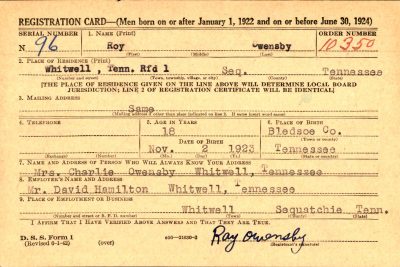 REGISTRATION CARD—(Men born on or after January 1, 1922 and on or before June 30, 1924)
SERIAL NUMBER 1. NAME (Print) ORDER NUMBER
N 96 Roy Owensby 10350
(First) (Middle) (Last)
2. PLACE OF RESIDENCE (Print)
Whitwell , Tenn. Rfd 1 Seq. Tennessee
(Number and street) (Town, township, village, or city) (County) (State)
[THE PLACE OF RESIDENCE GIVEN ON THE LINE ABOVE WILL DETERMINE LOCAL BOARD
JURISDICTION; LINE 2 OF REGISTRATION CERTIFICATE WILL BE IDENTICAL]
3. MAILING ADDRESS
Same
[Mailing address if other than place indicated on line 2. If same insert word same]
4. TELEPHONE 5. AGE IN YEARS 6. PLACE OF BIRTH
18 Bledsoe Co.
DATE OF BIRTH (Town or county)
Nov. 2 1923 Tennessee
(Exchange) (Number) (Mo.) (Day) (Yr.) (State or country)
7. NAME AND ADDRESS OF PERSON WHO WILL ALWAYS KNOW YOUR ADDRESS
Mrs. Charlie Owensby Whitwell, Tennessee
8. EMPLOYER'S NAME AND ADDRESS
Mr. David Hamilton Whitwell, Tennessee
9. PLACE OF EMPLOYMENT OR BUSINESS
Whitwell Sequatchie Tenn.
(Number and street or R. F. D. number) (Town) (County) (State)
I AFFIRM THAT I HAVE VERIFIED ABOVE ANSWERS AND THAT THEY ARE TRUE.
D. S. S. Form 1
(Revised 6-1-42) (over) Roy Owensby
(Registrant's signature)